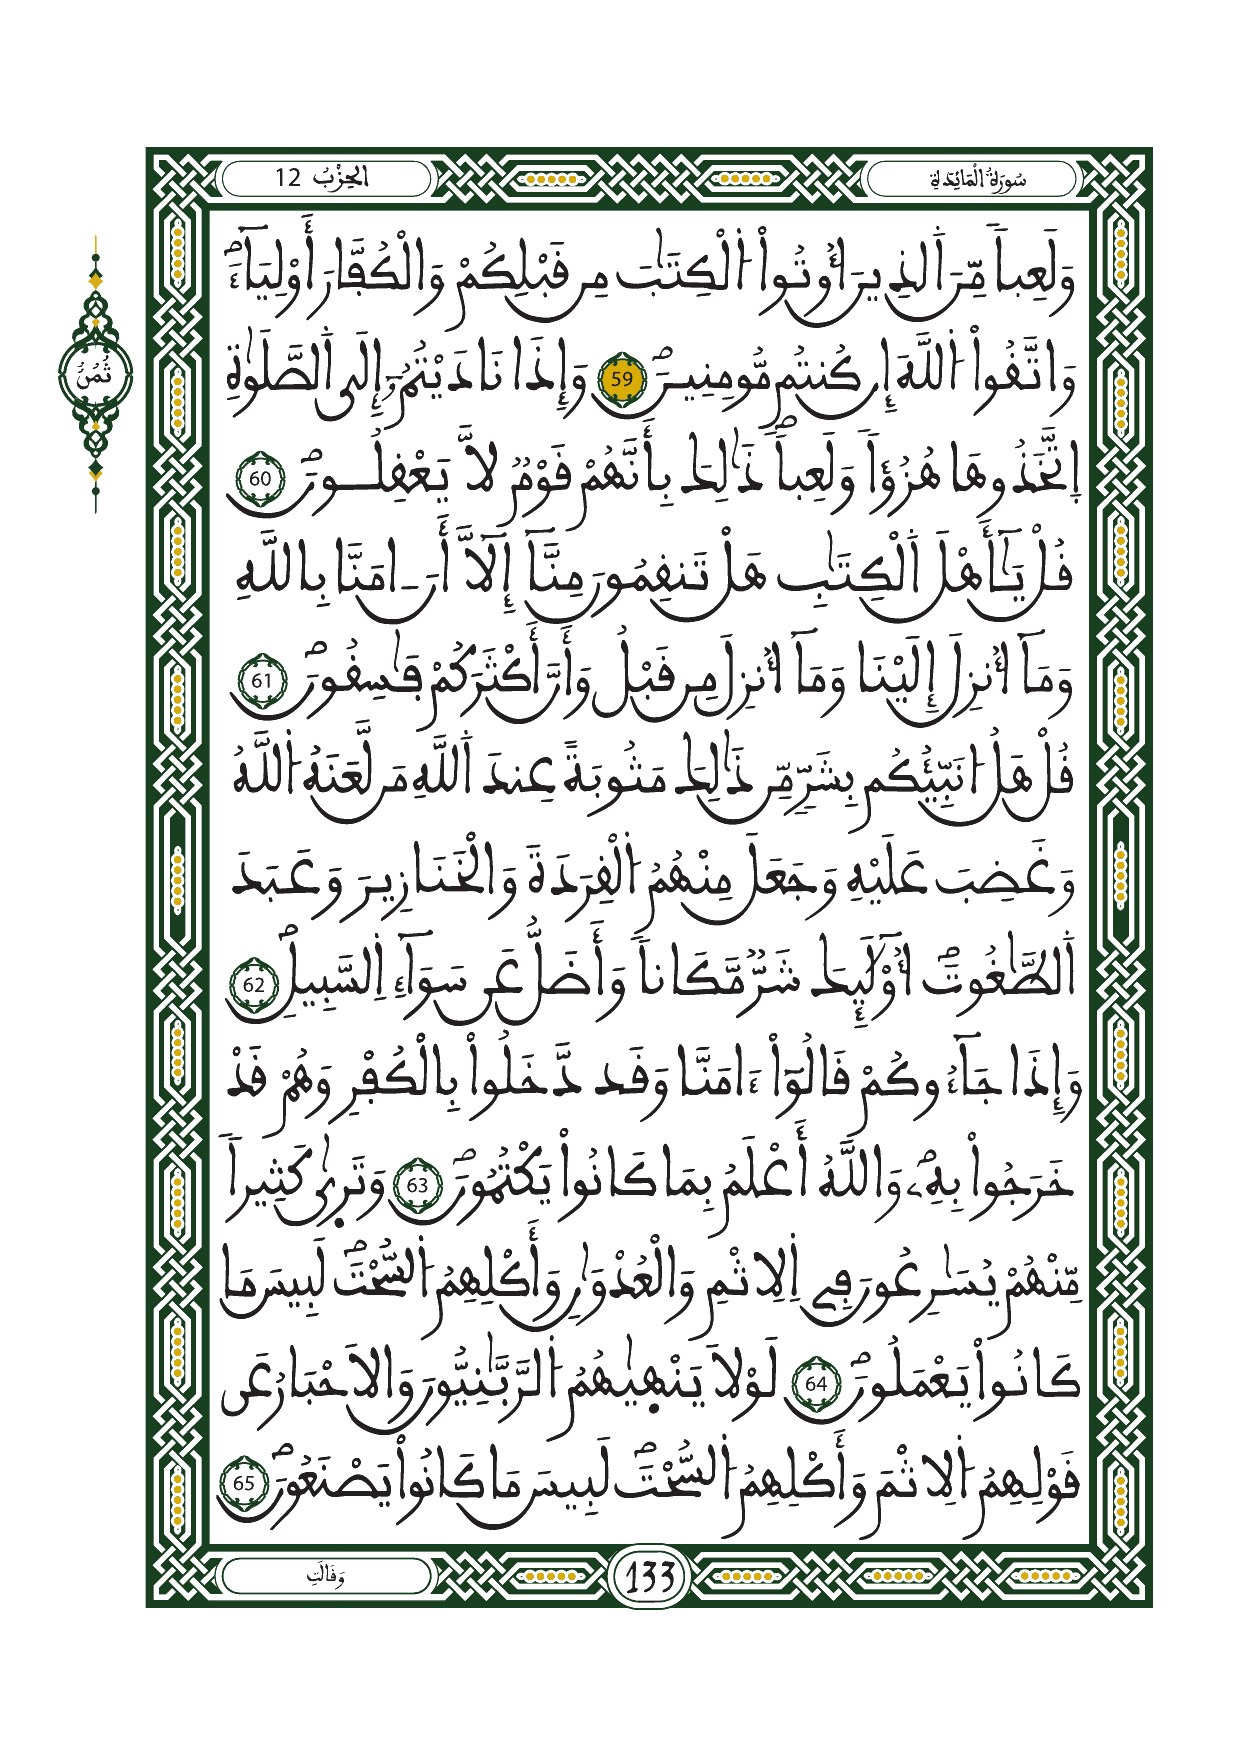 سُورَةُ الْمَائِدَةِ
الحِزْبُ 12
وَلَعِباٗ مِّنَ اَ۬لذِينَ أُوتُواْ اُ۬لْكِتَٰبَ مِن قَبْلِكُمْ وَالْكُفَّارَ أَوْلِيَآءَۖ
وَاتَّقُواْ اُ۬للَّهَ إِن كُنتُم مُّومِنِينَۖ 59 وَإِذَا نَادَيْتُمُۥٓ إِلَي اَ۬لصَّلَوٰةِ
ثُمُنُ
اِ۪تَّخَذُوهَا هُزُؤاٗ وَلَعِباٗۖ ذَٰلِكَ بِأَنَّهُمْ قَوْمٞ لَّا يَعْقِلُونَۖ 60
قُلْ يَٰٓأَهْلَ اَ۬لْكِتَٰبِ هَلْ تَنقِمُونَ مِنَّآ إِلَّآ أَنَ اٰمَنَّا بِاللَّهِ
وَمَآ أُنزِلَ إِلَيْنَا وَمَآ أُنزِلَ مِن قَبْلُ وَأَنَّ أَكْثَرَكُمْ فَٰسِقُونَۖ 61
قُلْ هَلُ ا۟نَبِّئُكُم بِشَرّٖ مِّن ذَٰلِكَ مَثُوبَةً عِندَ اَ۬للَّهِ مَن لَّعَنَهُ اُ۬للَّهُ
وَغَضِبَ عَلَيْهِ وَجَعَلَ مِنْهُمُ اُ۬لْقِرَدَةَ وَالْخَنَازِيرَ وَعَبَدَ
اَ۬لطَّٰغُوتَۖ أُوْلَٰٓئِكَ شَرّٞ مَّكَاناٗ وَأَضَلُّ عَن سَوَآءِ اِ۬لسَّبِيلِۖ 62
وَإِذَا جَآءُوكُمْ قَالُوٓاْ ءَامَنَّا وَقَد دَّخَلُواْ بِالْكُفْرِ وَهُمْ قَدْ
خَرَجُواْ بِهِۦۖ وَاللَّهُ أَعْلَمُ بِمَا كَانُواْ يَكْتُمُونَۖ 63 وَتَر۪يٰ كَثِيراٗ
مِّنْهُمْ يُسَٰرِعُونَ فِے اِ۬لِاثْمِ وَالْعُدْوَٰنِ وَأَكْلِهِمُ اُ۬لسُّحْتَۖ لَبِيسَ مَا
كَانُواْ يَعْمَلُونَۖ 64 لَوْلَا يَنْه۪يٰهُمُ اُ۬لرَّبَّٰنِيُّونَ وَالَاحْبَارُ عَن
قَوْلِهِمُ اُ۬لِاثْمَ وَأَكْلِهِمُ اُ۬لسُّحْتَۖ لَبِيسَ مَا كَانُواْ يَصْنَعُونَۖ 65
وَقَالَتِ
133